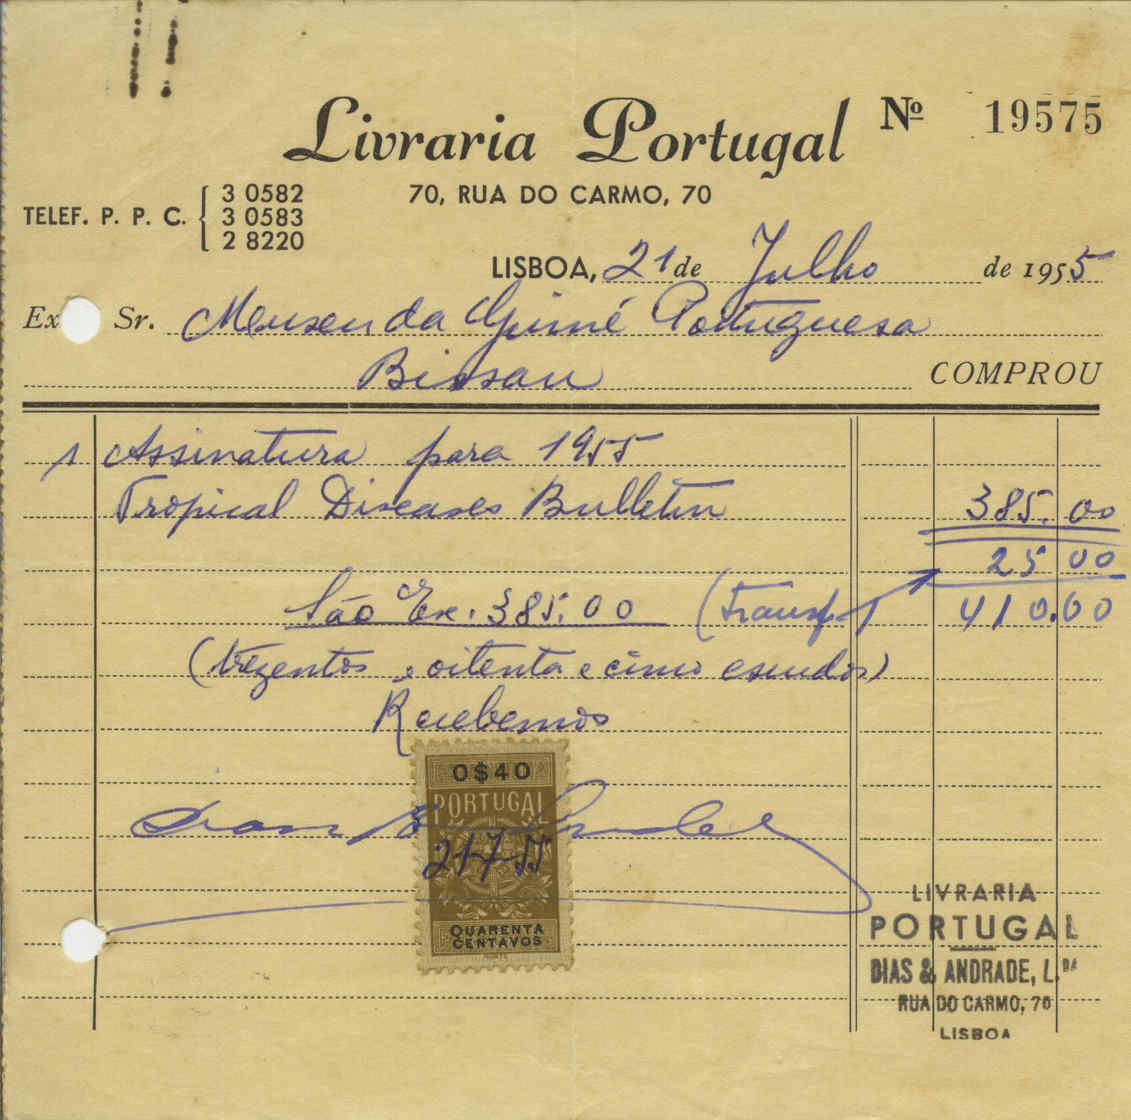 Livraria Portugal Nº 19575
70, RUA DO CARMO, 70
TELEF. P. P. C. { 3 0582
3 0583
2 8220
LISBOA, 21 de Julho de 1955
Ex Sr. Meuseu da Guiné Portuguesa
Bissau COMPROU
1 Assinatura para 1955
Tropical Diseases Bulletin 385.00
25 00
São Esc. 385.00 (Transf.) 410.00
(trezentos e oitenta e cinco escudos)
Recebemos
0$40
PORTUGAL
21-7-55
QUARENTA
CENTAVOS
LIVRARIA
PORTUGAL
DIAS & ANDRADE, L.DA
RUA DO CARMO, 70
LISBOA